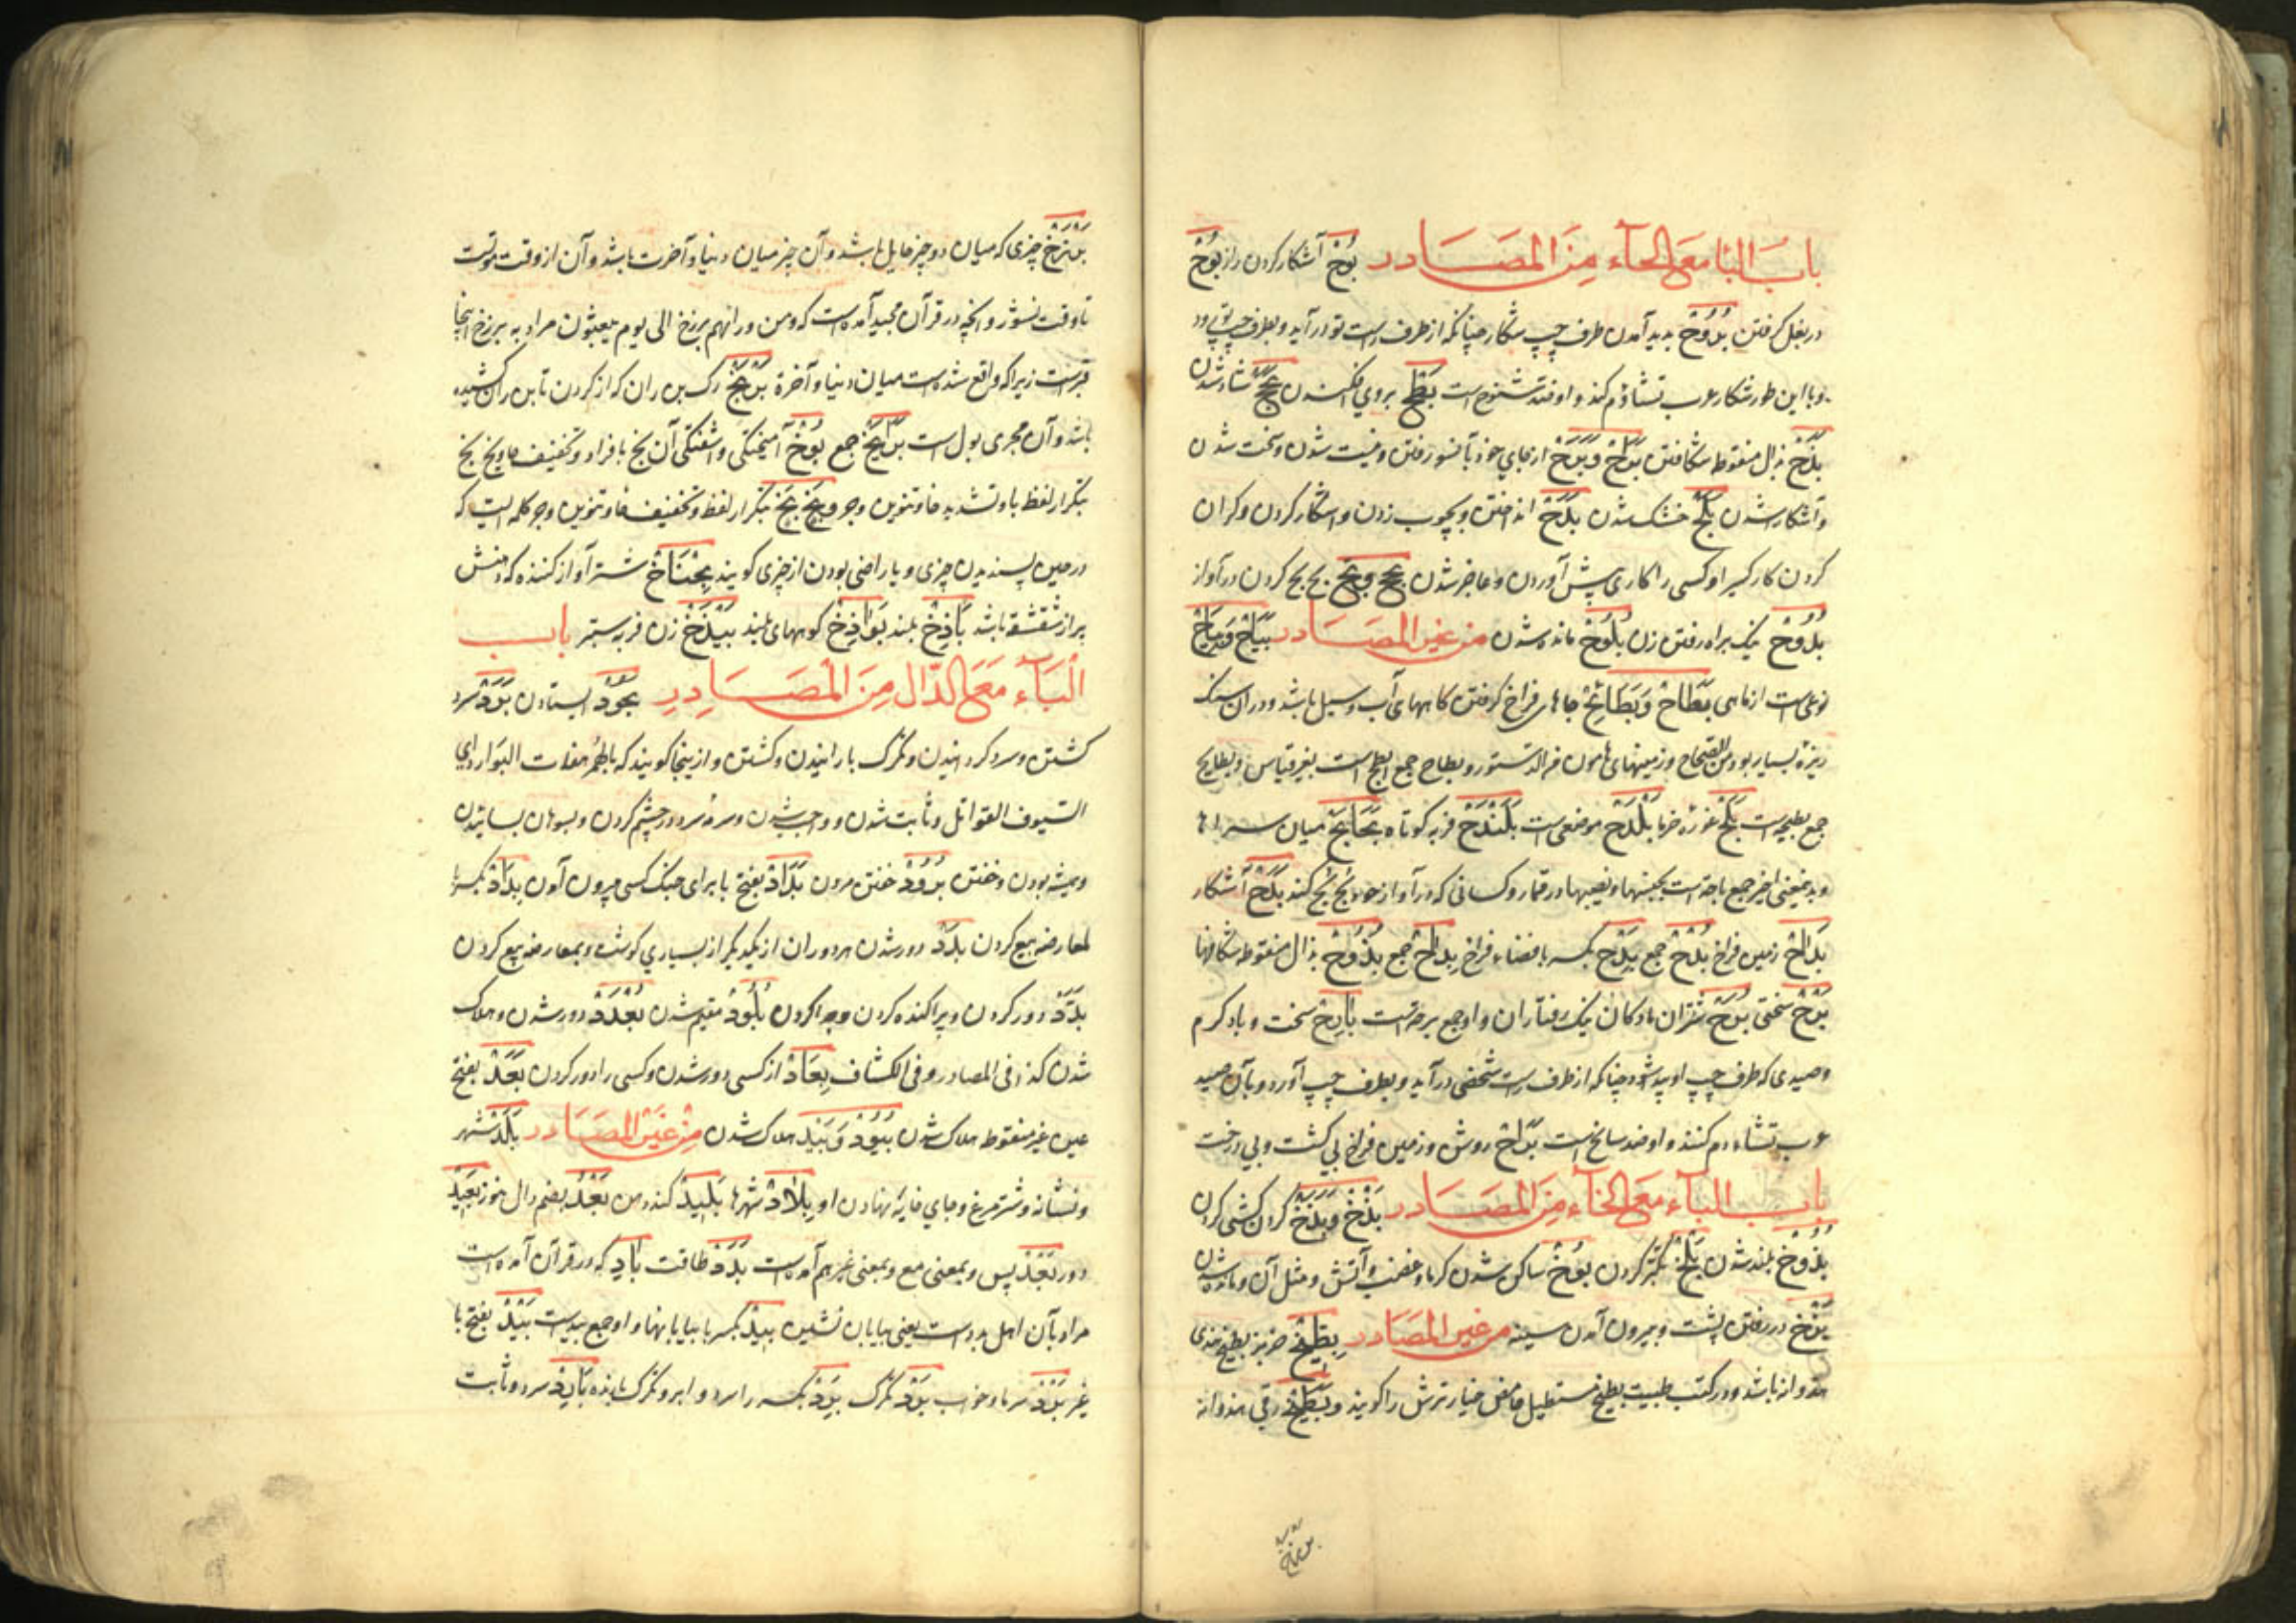 باب البا مع الحآء من المصادر بوح آشکار کردن راز بوح
در بغل گرفتن بروح پدید آمدن طرف چپ شکار چنانکه از طرف راست تو درآید و بطرف چپ تو رود
و با این طور شکار عرب تشاؤم کند و او ضد سنوح است بطح بروی افکندن بجح شاد شدن
بذح بذال منقوطه شکافتن براح و برح از جای خود بآنسو رفتن و نیست شدن و سخت شدن
و آشکار شدن بلح خشک شدن بدح انداختن و بچوب زدن و آشکار کردن و گران
کردن کار کسی را و کسی را کاری پیش آوردن و عاجز شدن بحح بح بح کردن در آواز
بدوح نیک براه رفتن زن بلوح مانده شدن من غیر المصادر بیاح
نوعی است از ماهی بطاح و بطائح جاهای فراخ گرفتن گاههای آب و سیل باشد و در آن سنگ
ریزه بسیار بود من الصحاح و زمینهای هامون فی الدستور و بطاح جمع ابطح است بغیر قیاس و بطایح
جمع بطیحه است بلح غوره خرما بلدح موضعی است بلندح فربه کوتاه بحابح میان سراها
آشکار
بداح زمین فراخ بدح جمع بدح بکسر با فضاء فراخ بداح جمع بذوح بذال منقوطه شکافها
برح سختی برح شتران مادگان نیک رفتاران و او جمع برحه است بارح سخت و باد گرم
و صیدی که طرف چپ او پیدا شود چنانکه از طرف راست شخصی درآید و بطرف چپ آورد و بآن صید
عرب تشاءم کنند و او ضد سانح است براح روشن و زمین فراخ بی کشت و بی درخت
باب البآء مع الخآء من المصادر بذخ و بذخ گردن کشی کردن
بذوخ بلند شدن بلخ تکبر کردن بوخ ساکن شدن گرما و غضب و آتش و مثل آن و مانده شدن
بزخ در رفتن پشت و بیرون آمدن سینه من غیر المصادر بطیخ خربز بطیخ هندی
هندوانه باشد و در کتب طبیت بطیخ مستطیل حامض خیار ترش را گویند و بطیخ رقی هندوانه
برزخ
برزخ چیزی که میان دو چیز حایل باشد و آن چیز میان دنیا و آخرت باشد و آن از وقت موتست
تا وقت نشور و آنچه در قرآن مجید آمده است که و من ورائهم برزخ الی یوم یبعثون مراد به برزخ اینجا
قبر است زیرا که واقع شده است میان دنیا و آخرة بربخ رگ بن ران که از گردن تا بن ران کشیده
باشد و آن مجری بول است برابخ جمع بوخ آمیختگی و اشفتگی آن بخ بافراد و تخفیف خا و بخ بخ
بتکرار لفظ با و تشدید خا و تنوین و جر و بخ بخ بتکرار لفظ و تخفیف خا و تنوین و جر کلمه ایست که
در حین پسندیدن چیزی و یا راضی بودن از چیزی گویند بخباخ شتر آواز کننده که دهنش
پر از شقشقه باشد باذخ بلند بواذخ کوههای بلند بیذخ زن فربه ستبر باب
البآء مع الدال من المصادر بجود ایستادن برد سرد
گشتن و سرد گردانیدن و تگرگ بارانیدن و کشتن و از ینجا گویند که
السیوف القواتل و ثابت شدن و واجب شدن و سرمه سرد در چشم کردن و بسوهان بسائیدن
و بیشه بودن و خفتن برود خفتن مردن بداد بفتح با برای جنگ کسی بیرون آمدن بداد بکسر با
بمعارضه بیع کردن بدد دور شدن هر دو ران از یکدیگر از بسیاری گوشت و بمعارضه بیع کردن
بدد دور کردن و پراکنده کردن و جدا کردن بلود مقیم شدن بعد دور شدن و هلاک
شدن کذا فی المصادر و فی الکشاف بعاد از کسی دور شدن و کسی را دور کردن بعد بفتح
عین غیر منقوطه هلاک شدن بیود و بید هلاک شدن من غیر المصادر بلد شهر
و نشانه و شتر مرغ و جای خایه نهادن او بلاد شهرها بلید کند ذهن بعد بضم دال هنوز بعید
دور بعد پس و بمعنی مع و بمعنی غیر هم آمده است بدد طاقت باد که در قرآن آمده است
مراد بآن اهل بدو است یعنی بیابان نشین بید بکسر با بیابانها و او جمع بیداست بید بفتح با
غیر برد سرما و خواب برد تگرگ برد بکسر را سرد و ابر و تگرگ بارنده بارد سرد و ثابت